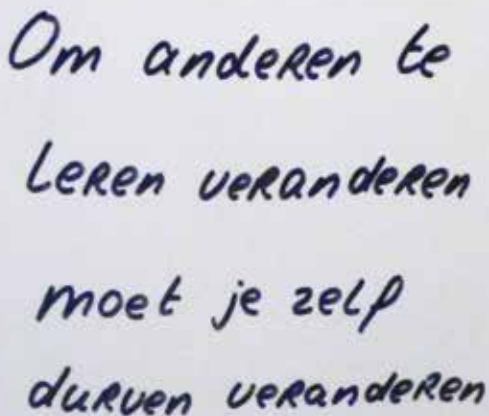 Om anderen te
leren veranderen
moet je zelf
durven veranderen